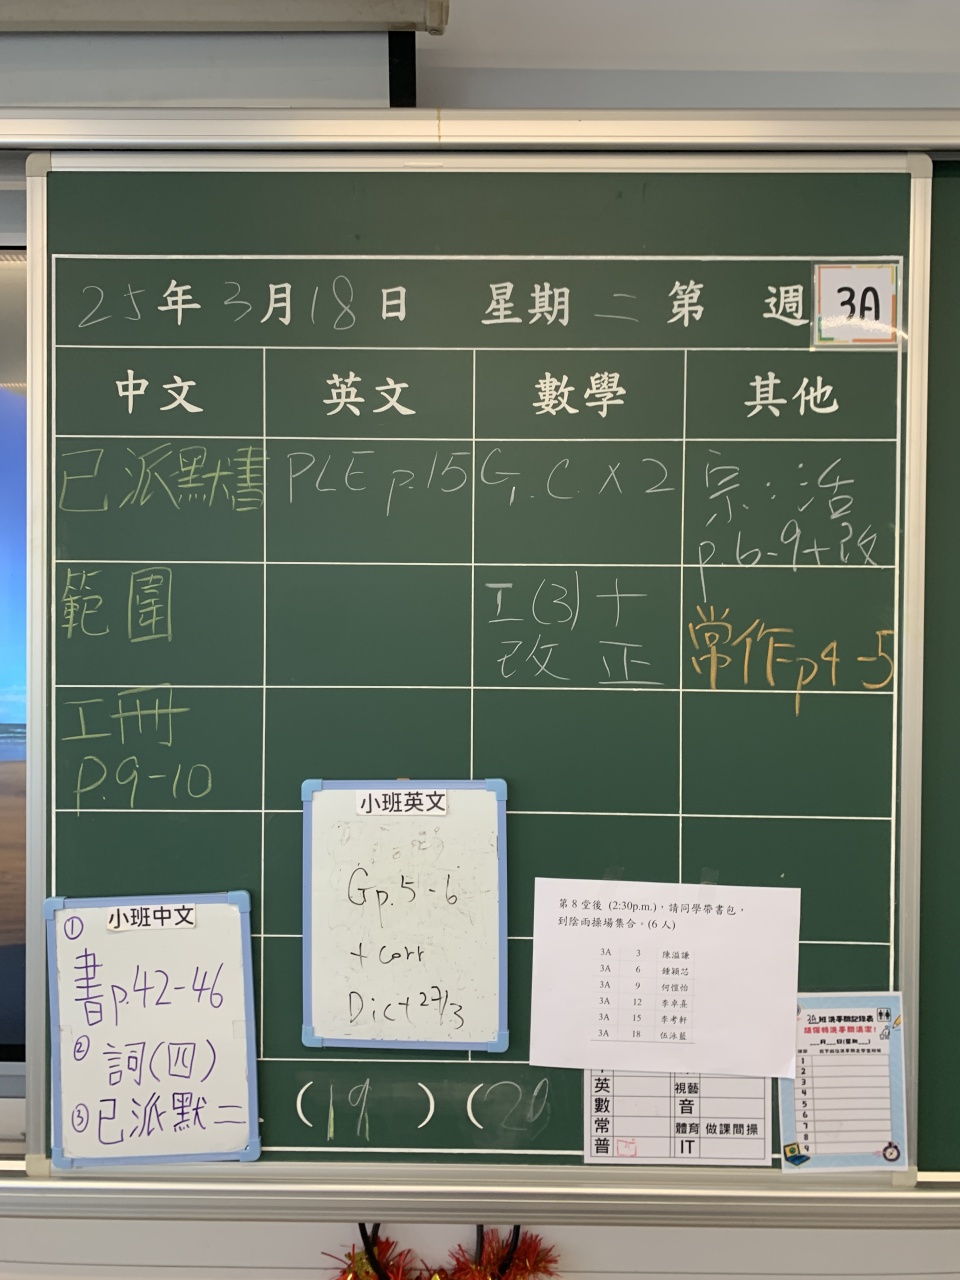 25年3月18日 星期二 第 週 3A
中文 英文 數學 其他
已派默書
範圍
工冊
P.9-10
PLE p.15
G.C.×2
工(3)+
改正
宗:活
p.6-9+改
常作p4-5
小班英文
Gp.5-6
+corr
Dict 27/3
小班中文
① 書p.42-46
② 詞(四)
③ 已派默二
第 8 堂後 (2:30p.m.),請同學帶書包,
到陰雨操場集合。(6 人)
3A 3 陳溢謙
3A 6 鍾穎芯
3A 9 何愷怡
3A 12 李卓熹
3A 15 李考軒
3A 18 伍泳藍
(19) (29
英 視藝
數 音
常 體育 做課間操
普 IT
3A班洗手間記錄表
請保持洗手間清潔!
__月__日(星期__)
1
2
3
4
5
6
7
8
9